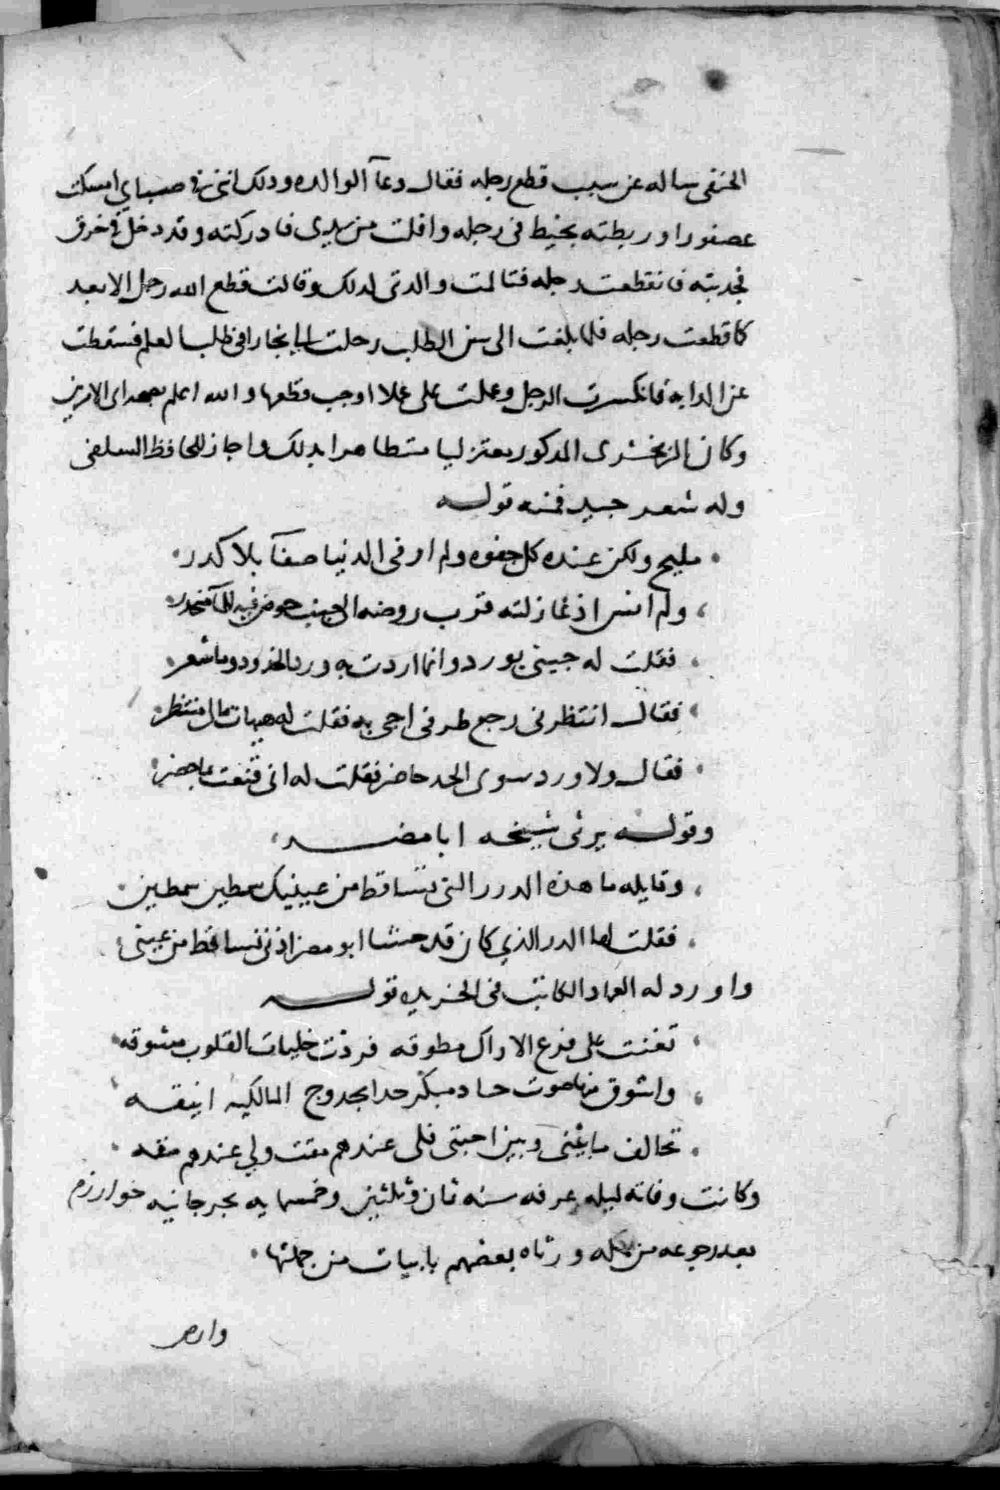 الحنفى ساله عن سبب قطع رجله فقال دعآ الوالده وذلك اننى فى صباي امسكت
عصفورا وربطته بخيط فى رجله وافلت من يدى فادركته وقد دخل فى خرق
فجذبته فانقطعت رجله فتالمت والدتى لذلك وقالت قطع الله رجل الابعد
كما قطعت رجله فلما بلغت الى سن الطلب رحلت الى بخارا فى طلب العلم فسقطت
عن الدابه فانكسرت الرجل وعملت على عملا اوجب قطعها والله اعلم
وكان الزمخشرى المذكور معتزليا متظاهرا بذلك واجاز للحافظ السلفى
وله شعر جيد فمنه قوله
مليح ولكن عنده كل جفوه ولم ار فى الدنيا صفآ بلا كدر
ولم انس اذ غازلته قرب روضه الى جنب حوض فيه للمآ منحدر
فقلت له جيئنى بورد وانما اردت به ورد الخدود وما شعر
فقال انتظرنى رجع طرفى اجى به فقلت له هيهات مالى منتظر
فقال ولا ورد سوى الخد حاضر فقلت له انى قنعت بما حضر
وقوله يرثى شيخه ابا مضر
وقايله ما هذه الدرر التى تتساقط من عينيك سمطين سمطين
فقلت لها الدر الذي كان قد حشا ابو مضر اذنى تساقط من عينى
واورد له العماد الكاتب فى الخريده قوله
تغنت على فرع الاراك مطوقه فردت خليات القلوب مشوقه
واشوق منها صوت حاد مبكر حدا بحدوج المالكيه اينقه
تحالف ما بينى وبين احبتى فلى عندهم مقت ولي عندهم مقه
وكانت وفاته ليله عرفه سنه ثمان وثلثين وخمسمايه بجرجانيه خوارزم
بعد رجوعه من مكه ورثاه بعضهم بابيات من جملتها